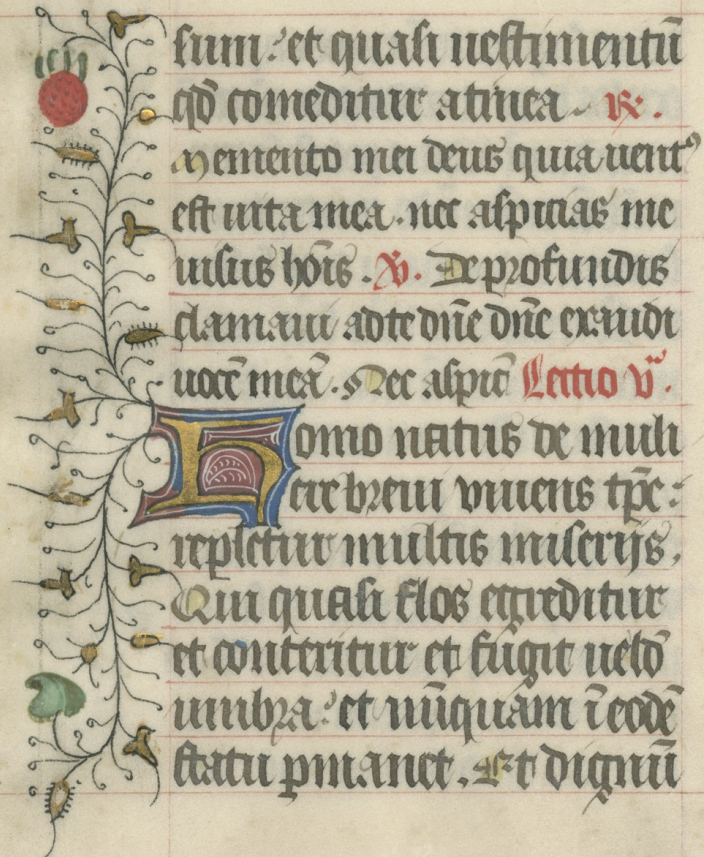 sum: et quasi uestimentū
qd̄ comeditur atinea. R̷.
Memento mei deus quia uentꝰ
est uita mea. nec aspicias me
uisus hōis. V̷. De profundis
clamaui adte dn̄e dn̄e exaudi
uocē meā. Nec aspic̄ Lectio vᵃ.
Homo natus de muli
ere breui viuens tp̄e:
repletur multis miserijs.
Qui quasi flos egreditur
et conteritur et fugit uelđ
umbra: et nūquam ī eodē
statu ꝑmanet. Et dignū